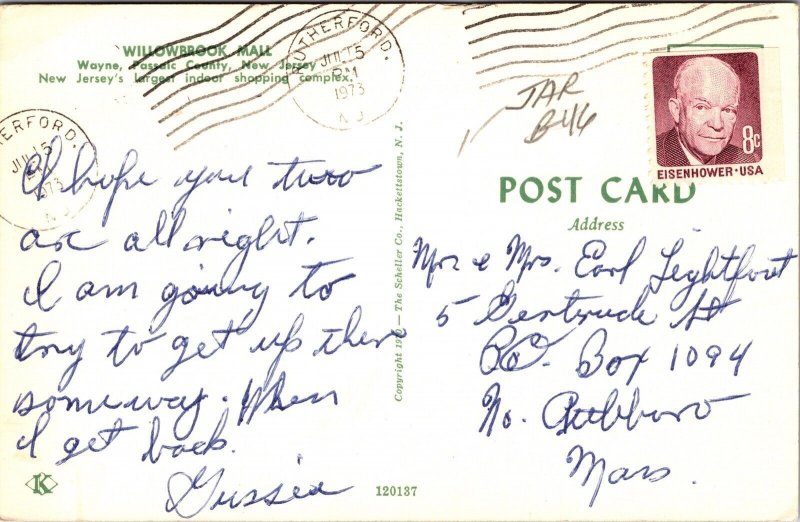 WILLOWBROOK MALL
Wayne, Passaic County, New Jersey
New Jersey's largest indoor shopping complex.
RUTHERFORD.
JUL 15
PM
1973
N.J.
I hope you two
are all right.
I am going to
try to get up there
someway. When
I get back.
Gussie
K
Copyright — The Scheller Co., Hackettstown, N. J.
120137
JAR
B46
8c
EISENHOWER·USA
POST CARD
Address
Mr. & Mrs. Earl Lightfoot
5 Gertrude St
P.O. Box 1094
No.
Mass.